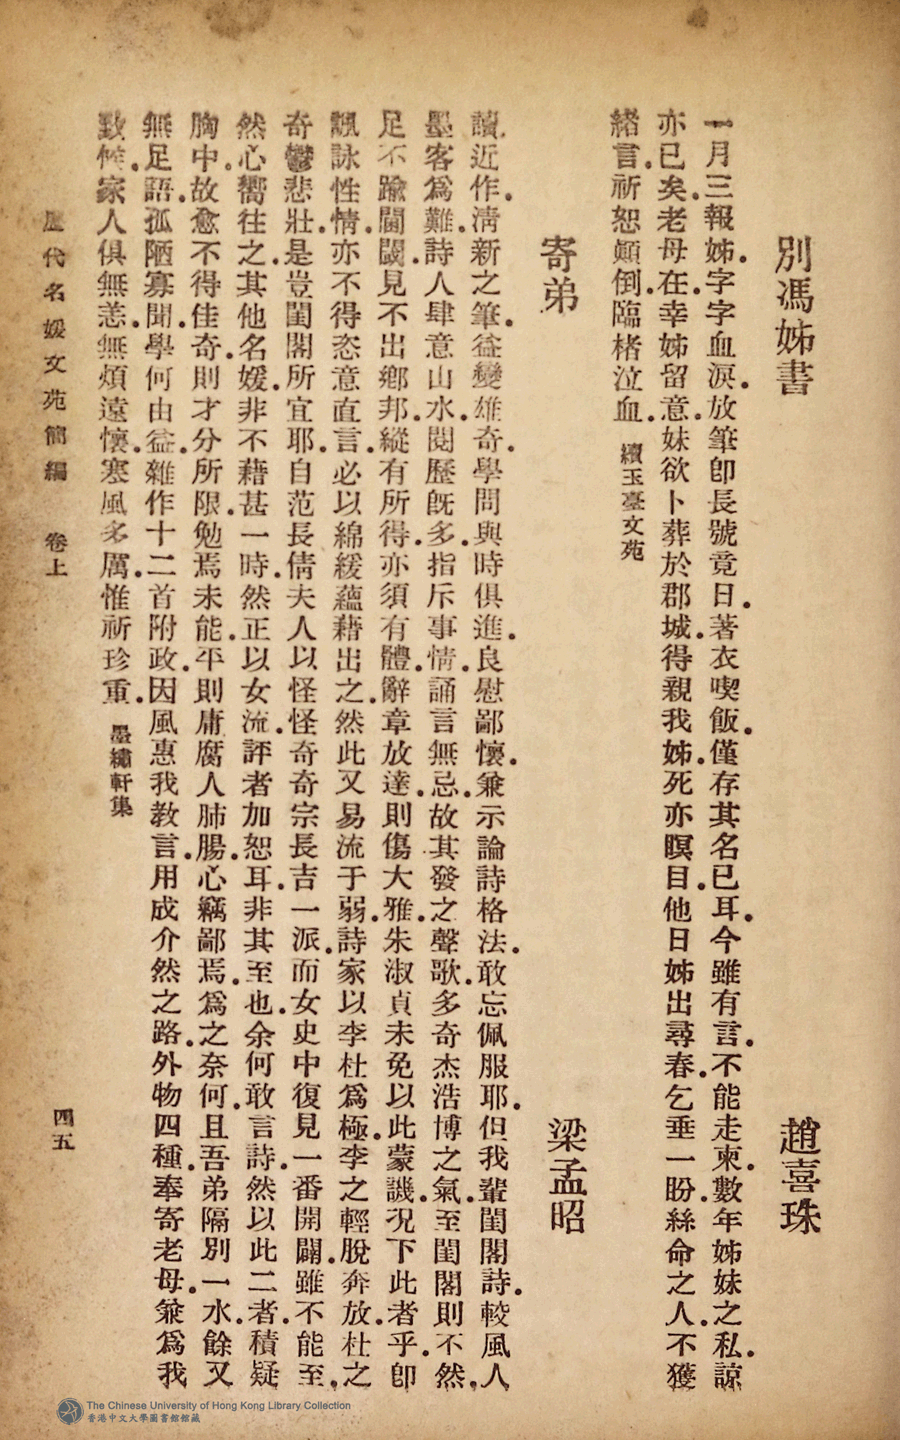 別馮姊書　趙喜珠
一月三報姊。字字血淚。放筆卽長號竟日。著衣喫飯。僅存其名已耳。今雖有言。不能走柬。數年姊妹之私。諒
亦已矣。老母在。幸姊留意。妹欲卜葬於郡城。得親我姊。死亦瞑目。他日姊出尋春。乞垂一盼。絲命之人。不獲
緒言。祈恕顚倒。臨楮泣血。續玉臺文苑
寄弟　梁孟昭
讀近作。淸新之筆。益變雄奇。學問與時俱進。良慰鄙懷。兼示論詩格法。敢忘佩服耶。但我輩閨閣詩。較風人
墨客爲難。詩人肆意山水。閱歷旣多。指斥事情。誦言無忌。故其發之聲歌。多奇杰浩博之氣。至閨閣則不然。
足不踰閫閾。見不出鄕邦。縱有所得。亦須有體。辭章放達。則傷大雅。朱淑貞未免以此蒙譏。況下此者乎。卽
諷詠性情。亦不得恣意直言。必以綿緩蘊藉出之。然此又易流于弱。詩家以李杜爲極。李之輕脫奔放。杜之
奇鬱悲壯。是豈閨閣所宜耶。自范長倩夫人以怪怪奇奇宗長吉一派。而女史中復見一番開闢。雖不能至。
然心嚮往之。其他名媛。非不藉甚一時。然正以女流。評者加恕耳。非其至也。余何敢言詩。然以此二者積疑
胸中。故愈不得佳奇。則才分所限。勉焉未能。平則庸腐人肺腸。心竊鄙焉。爲之奈何。且吾弟隔別一水。餘又
無足語。孤陋寡聞。學何由益。雜作十二首附政。因風惠我教言。用成介然之路。外物四種。奉寄老母。兼爲我
致候。家人俱無恙。無煩遠懷。寒風多厲。惟祈珍重。墨繡軒集
歷代名媛文苑簡編　卷上
四五
The Chinese University of Hong Kong Library Collection
香港中文大學圖書館館藏